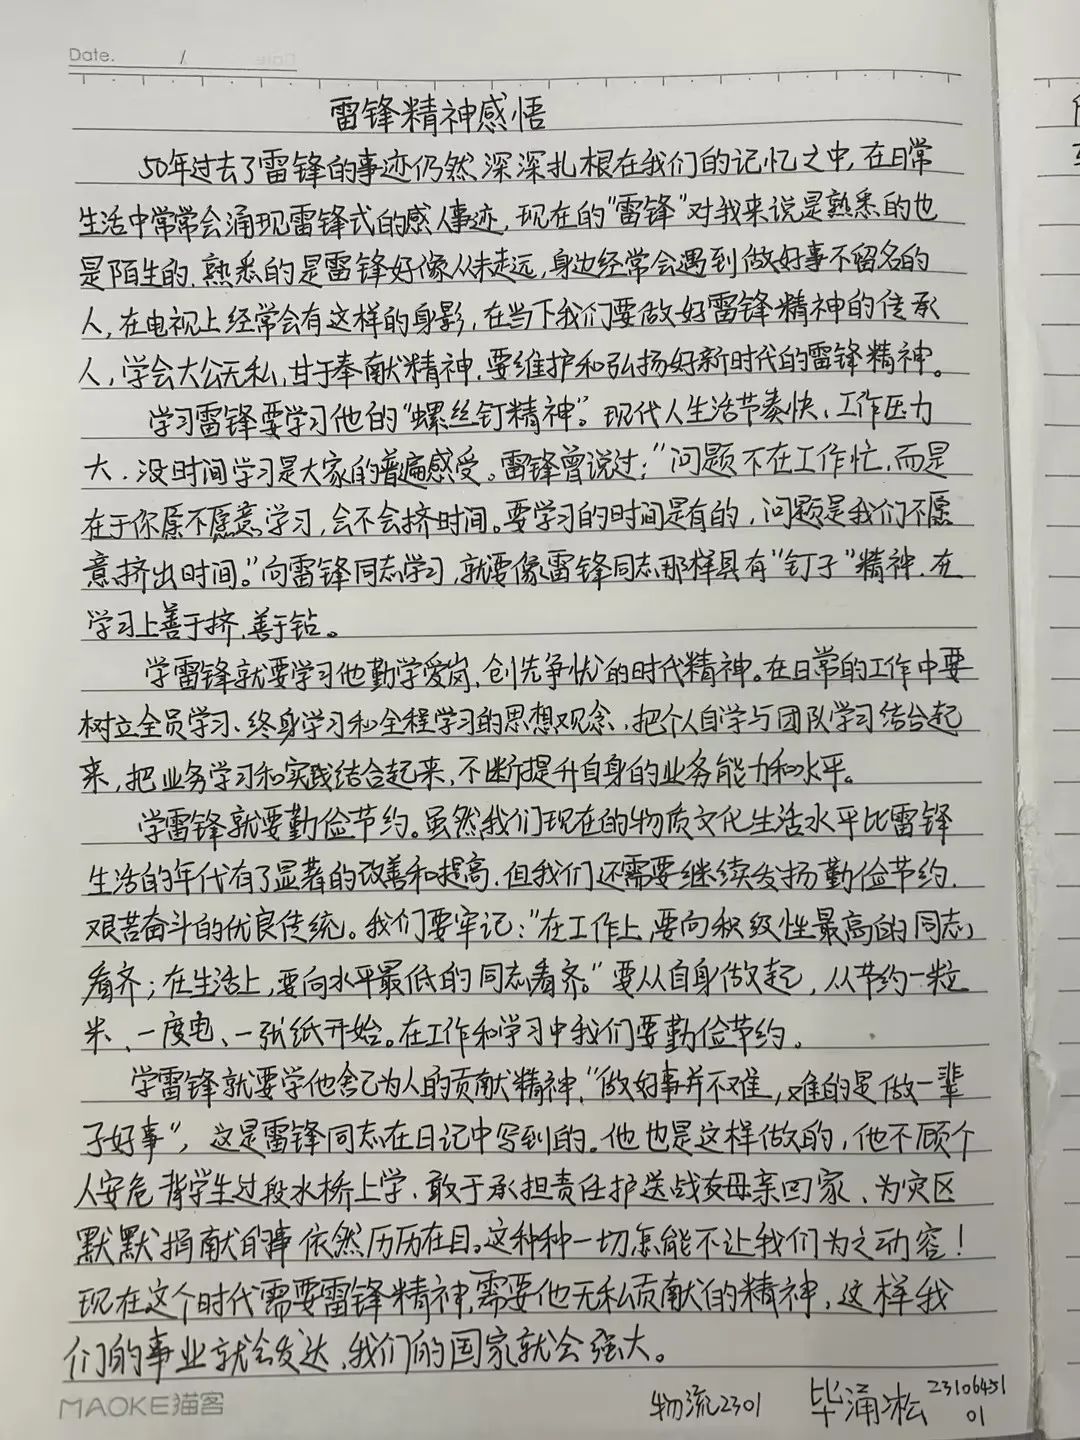 Date. /
雷锋精神感悟
50年过去了雷锋的事迹仍然深深扎根在我们的记忆之中,在日常
生活中常常会涌现雷锋式的感人事迹,现在的"雷锋"对我来说是熟悉的也
是陌生的.熟悉的是雷锋好像从未走远,身边经常会遇到做好事不留名的
人,在电视上经常会有这样的身影,在当下我们要做好雷锋精神的传承
人,学会大公无私,甘于奉献精神.要维护和弘扬好新时代的雷锋精神。
学习雷锋要学习他的"螺丝钉精神"。现代人生活节奏快、工作压力
大.没时间学习是大家的普遍感受。雷锋曾说过:"问题不在工作忙,而是
在于你愿不愿意学习,会不会挤时间。要学习的时间是有的,问题是我们不愿
意挤出时间。"向雷锋同志学习,就要像雷锋同志那样具有"钉子"精神.在
学习上善于挤.善于钻。
学雷锋就要学习他勤学爱岗,创先争优的时代精神。在日常的工作中要
树立全员学习、终身学习和全程学习的思想观念,把个人自学与团队学习结合起
来,把业务学习和实践结合起来,不断提升自身的业务能力和水平。
学雷锋就要勤俭节约。虽然我们现在的物质文化生活水平比雷锋
生活的年代有了显著的改善和提高.但我们还需要继续发扬勤俭节约.
艰苦奋斗的优良传统。我们要牢记:"在工作上,要向积极性最高的同志
看齐;在生活上,要向水平最低的同志看齐。"要从自身做起,从节约一粒
米、一度电、一张纸开始。在工作和学习中我们要勤俭节约.
学雷锋就要学他舍己为人的贡献精神,"做好事并不难,难的是做一辈
子好事",这是雷锋同志在日记中写到的.他也是这样做的,他不顾个
人安危背学生过段水桥上学.敢于承担责任护送战友母亲回家、为灾区
默默捐献的事依然历历在目。这种种一切怎能不让我们为之动容!
现在这个时代需要雷锋精神,需要他无私贡献的精神,这样我
们的事业就会发达,我们的国家就会强大。
MAOKE猫客
物流2301 毕涌凇 23106451
01